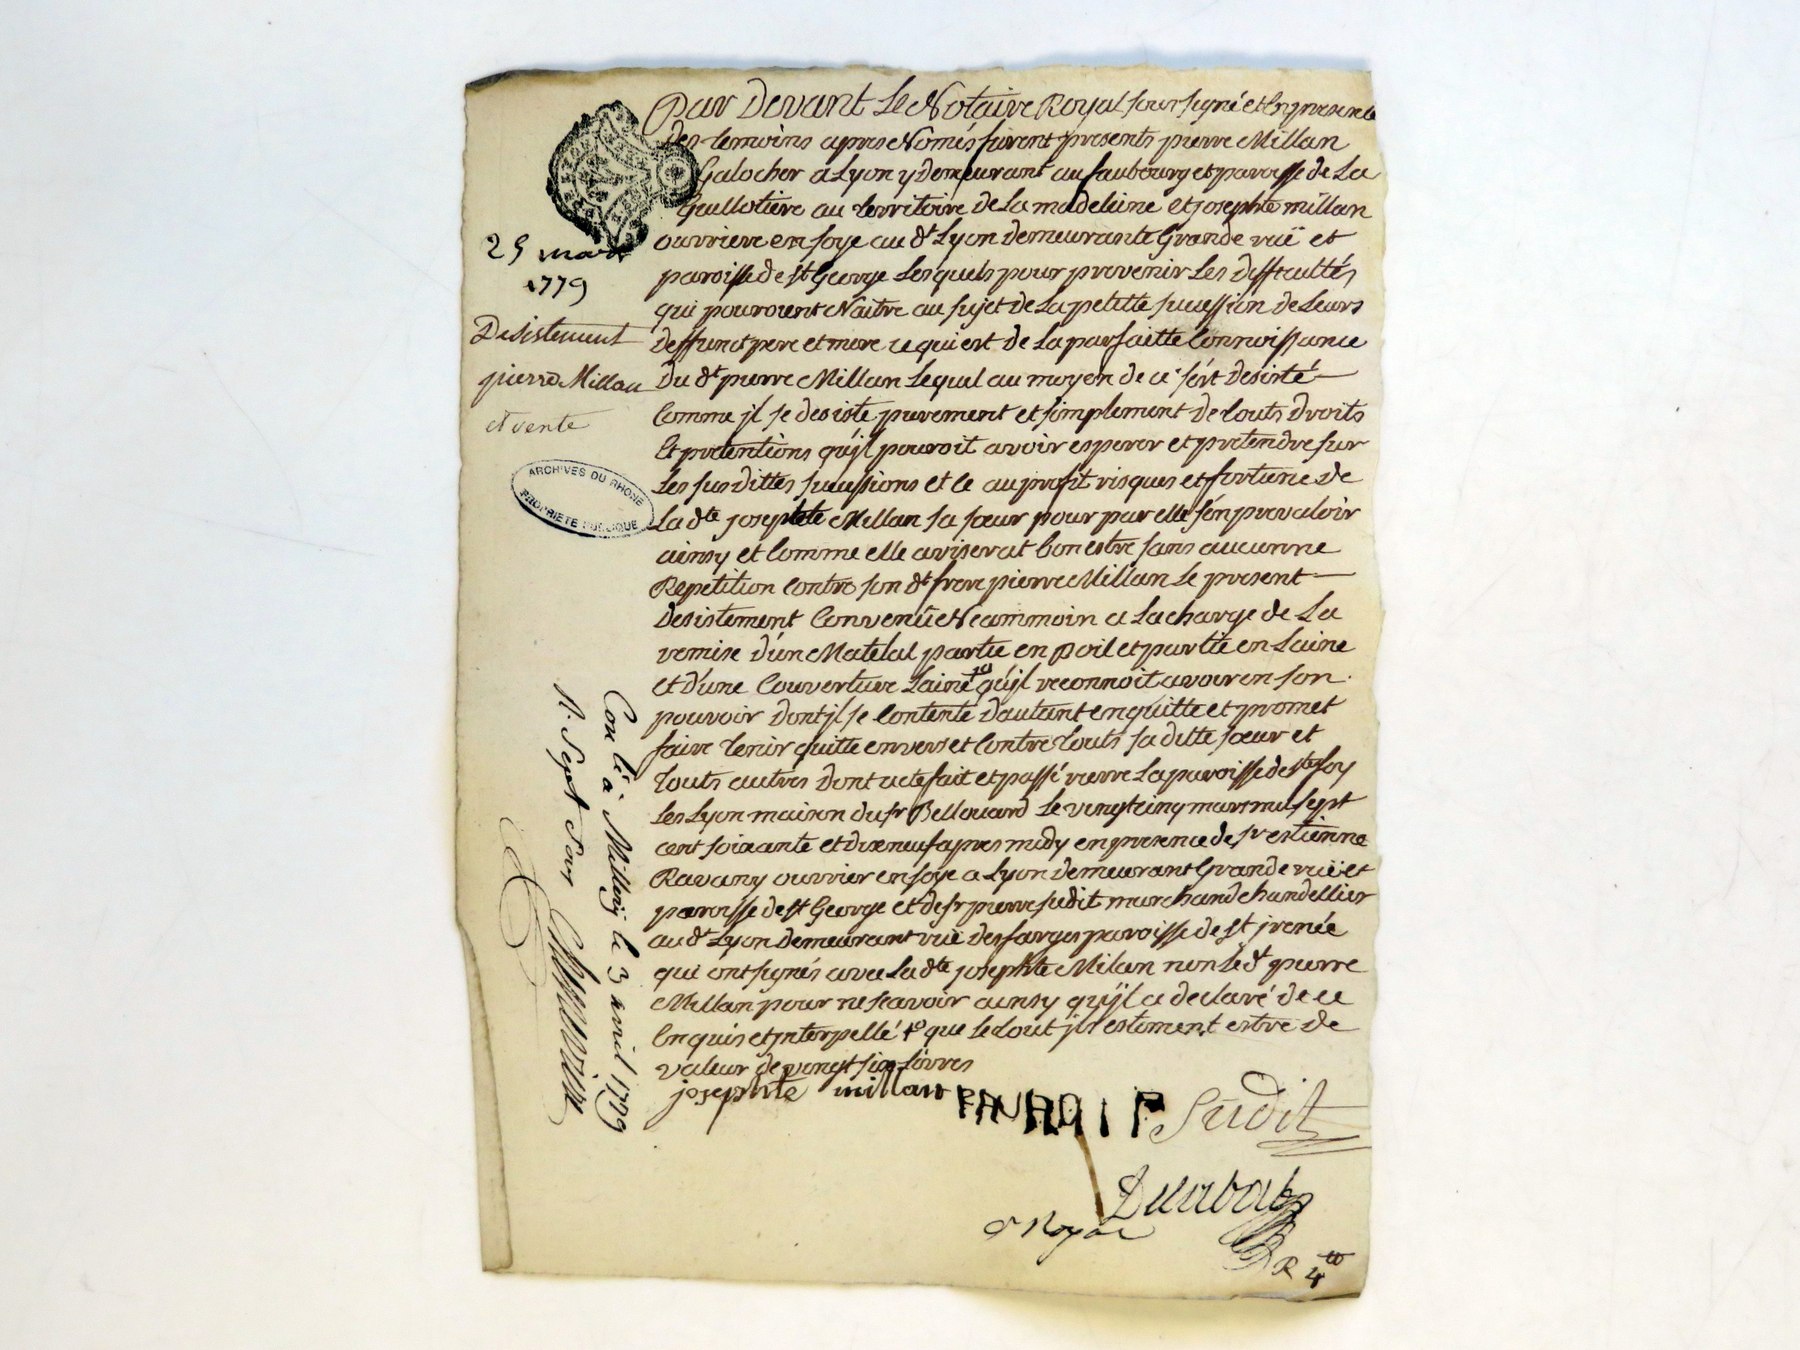 Par Devant Le Notaire Royal soussigné et En presence
Des temoins apres Només furent presents pierre Millan
Galocher a Lyon y Demeurant au faubourg et paroisse de La
Guillotiere au territoire de La madeleine et josephte millan
ouvriere en soye au dt Lyon demeurante Grande ruë et
paroisse de st George Lesquels pour prevenir Les difficultés
qui pouroient Naitre au sujet de La petitte sucession de Leurs
deffunct pere et mere ce qui est de La parfaitte Connoissance
Du dt pierre Millan Lequel au moyen de ce s'est desisté
Comme jl se desiste purement et simplement de touts droits
Et pretentions qu'jl pouroit avoir esperer et pretendre sur
Les susdittes sucessions et ce au profit risques et fortune de
La dte josephte Millan sa sœur pour par elle s'en prevaloir
ainsy et Comme elle aviserat bon estre sans aucunne
Repetition Contre son dt frere pierre Millan Le present
desistement Convenü Neammoin a La charge de La
remise d'un Matelat partie en poil et partie en Laine
et d'une Couverture Laine qu'jl reconnoit avoir en son
pouvoir dont jl se Contente d'autant en quitte et promet
faire tenir quitte envers et Contre touts sa ditte sœur et
touts autres dont acte fait et passé riere La paroisse de ste foy
Les Lyon maison du sr Bellouard Le vingt cinq mars mil sept
cent soixante et dix neuf apres midy en presence de sr estienne
Ravany ouvrier en soye a Lyon demeurant Grande ruë et
paroisse de st George et de sr pierre Sudit marchand chandellier
au dt Lyon demeurant ruë des farges paroisse de st jrenée
qui ont signés avec La dte josephte Millan non Le dt pierre
Millan pour ne scavoir ainsy qu'jl a declaré de ce
Enquis et jnterpellé que Le tout jls estiment estre de
valeur de vingt six Livres
josephte millan
Sudit
Nre Royal
25 mars
1779
Desistement
pierre Millan
et vente
ARCHIVES DU RHONE
PROPRIETE PUBLIQUE
Con lé à Millery le 3 avril 1779
R. Sept sous